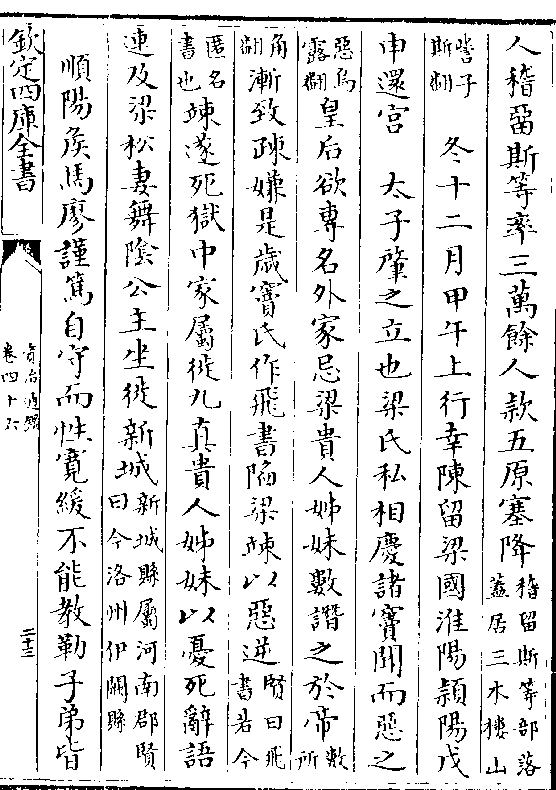 人稽留斯等率三萬餘人款五原塞降稽留斯等部落蓋居三木樓山
訾子斯翻　冬十二月甲午上行幸陳留梁國淮陽潁陽戊
申還宫　太子肇之立也梁氏私相慶諸竇聞而惡之
惡烏露翻皇后欲專名外家忌梁貴人姊妹數譖之於帝數所
角翻漸致疎嫌是歲竇氏作飛書陷梁竦以惡逆賢曰飛書若今
匿名書也竦遂死獄中家屬徙九真貴人姊妹以憂死辭語
連及梁松妻舞陰公主坐徙新城新城縣屬河南郡賢曰今洛州伊闕縣
順陽侯馬廖謹篤自守而性寛緩不能教勒子弟皆
欽定四庫全書
資治通鑑
卷四十六
二十三